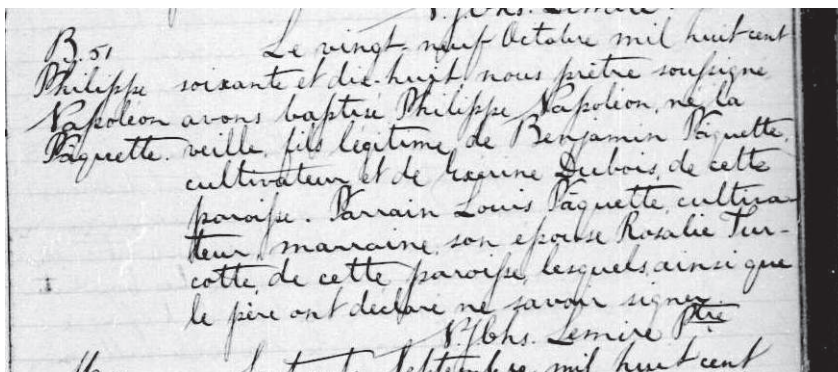 Lemire
B. 51
Philippe
Napoléon
Pâquette.
Le vingt-neuf Octobre mil huit cent
soixante et dix-huit nous prêtre soussigné
avons baptisé Philippe Napoléon, né la
veille, fils légitime de Benjamin Pâquette,
cultivateur et de Exérine Dubois, de cette
paroisse. Parrain Louis Pâquette, cultiva-
teur, marraine, son épouse Rosalie Tur-
cotte, de cette paroisse, lesquels ainsi que
le père ont déclaré ne savoir signer
Lemire Ptre
Septembre mil huit cent